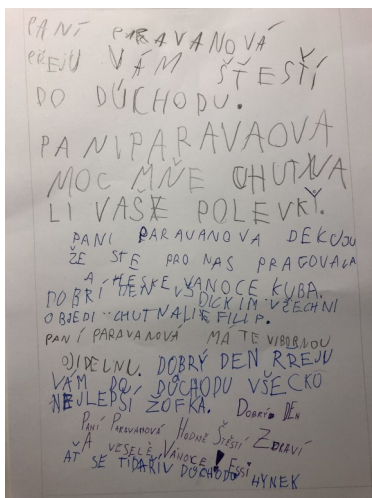 PANÍ PARAVANOVÁ
PŘEJU VÁM ŠTESTÍ
DO DŮCHODU.
PANIPARAVAOVA
MOC MŇE CHUTNA
LI VAŠE POLEVKY.
PANÍ PARAVANOVA DEKUJU
ŽE STE PRO NAS PRACOVALA
A HESKE VANOCE KUBA.
DOBRÍ DEN VŠDICKIM VŠECHNI
OBJEDI CHUTNALI FILIP.
PANÍ PARAVANOVÁ MATE VIBORNOU
JÍDELNU. DOBRÝ DEN RREJU
VÁM DO DŮCHODU VŠECKO
NEJLEPŠÍ ŽOFKA. DOBRÝ DEN
PANÍ PARAVANOVÁ HODNĚ ŠTĚSTÍ ZDRAVÍ
A VESELÉ VÁNOCE! ESSI
AŤ SE DAŘÍ V DŮCHODU HYNEK